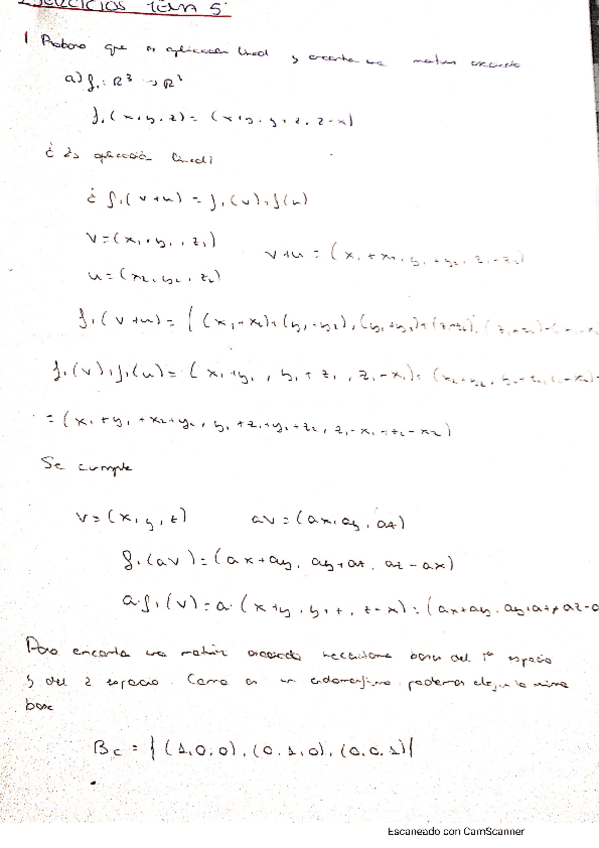 EJERCICIOS TEMA 5:
1 Probar que es aplicación lineal y encontrar una matriz asociada
a) f₁: R³ → R³
f₁(x, y, z) = (x+y, y+z, z-x)
¿ Es aplicación lineal?
¿ f₁(v+u) = f₁(v) + f(u)
v = (x₁, y₁, z₁)
v+u = (x₁+x₂, y₁+y₂, z₁+z₂)
u = (x₂, y₂, z₂)
f₁(v+u) = ( (x₁+x₂)+(y₁+y₂), (y₁+y₂)+(z₁+z₂), (z₁+z₂)-(
f₁(v)+f₁(u) = (x₁+y₁, y₁+z₁, z₁-x₁) + (x₂+y₂, y₂+z₂,
= (x₁+y₁+x₂+y₂, y₁+z₁+y₂+z₂, z₁-x₁+z₂-x₂)
Se cumple
v = (x, y, z) av = (ax, ay, az)
f₁(av) = (ax+ay, ay+az, az-ax)
a·f₁(v) = a·(x+y, y+z, z-x) = (ax+ay, ay+az, az-a
Para encontrar una matriz asociada necesitamos bases del 1er espacio
y del 2 espacio. Como es un endomorfismo podemos elegir la misma
base
Bc = {(1,0,0), (0,1,0), (0,0,1)}
Escaneado con CamScanner